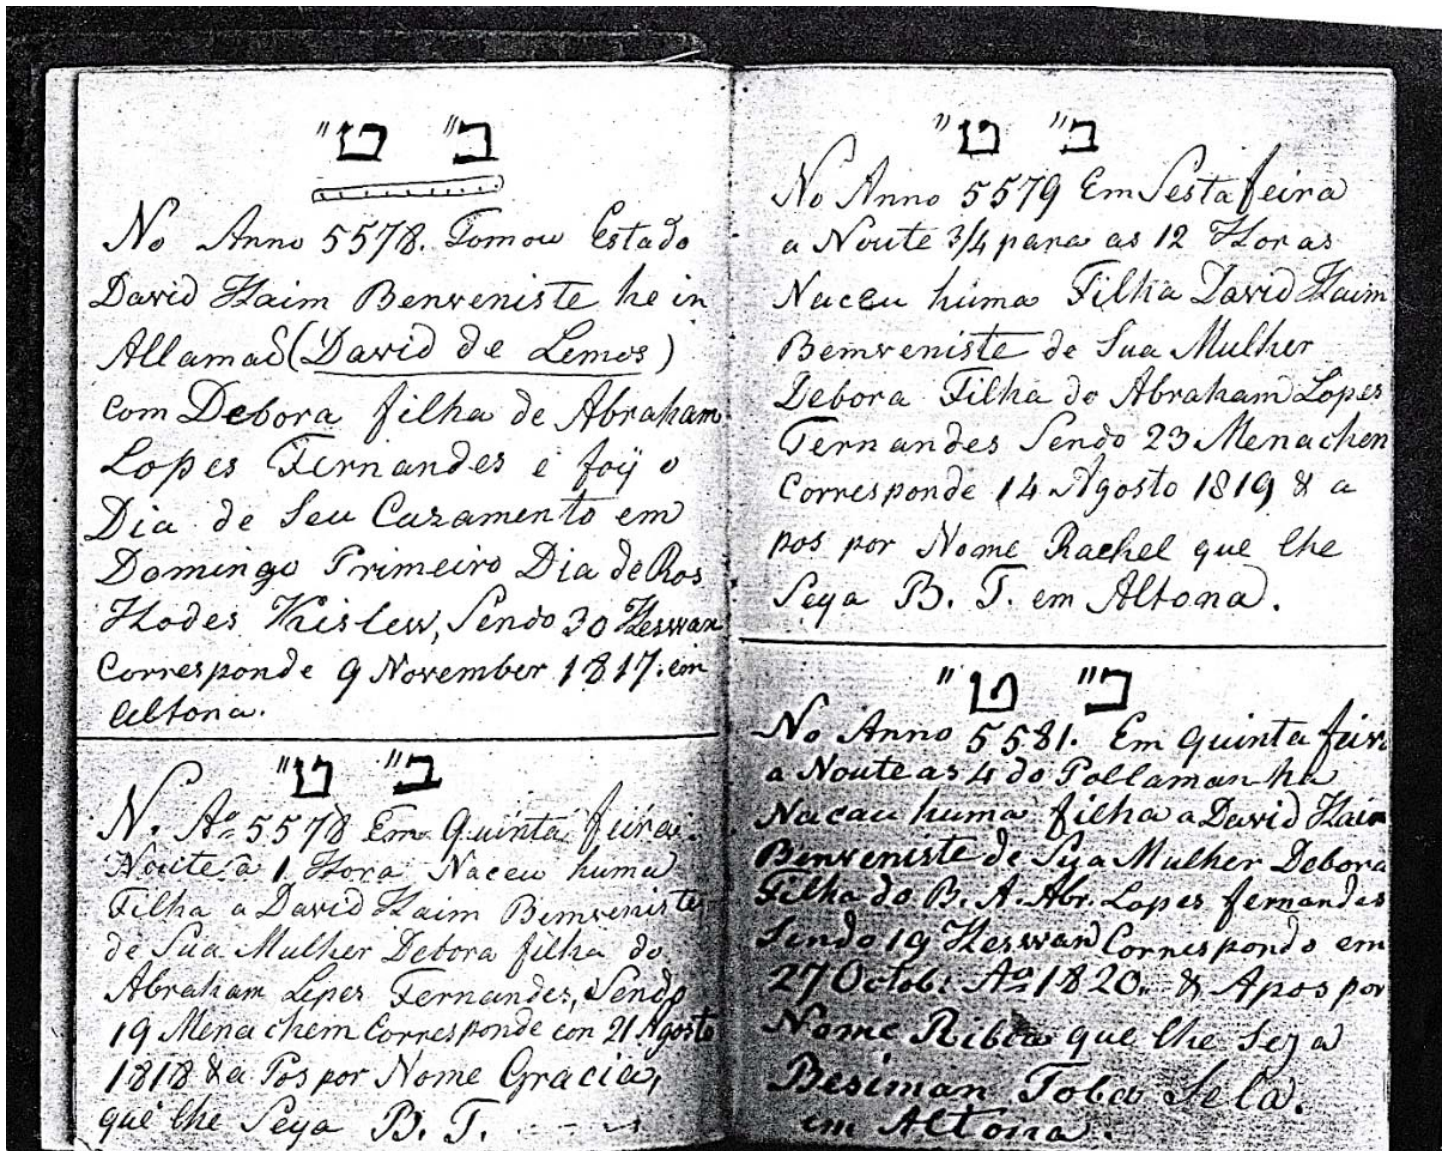 ב״ ט״
No Anno 5578. Tomou Estado
David Haim Benveniste he in
Allamaõ (David de Lemos)
com Debora filha de Abraham
Lopes Fernandes e foÿ o
Dia de Seu Cazamento em
Domingo Primeiro Dia de Ros
Hodes Kislew, Sendo 30 Heswan
Corresponde 9 November 1817. em
Altona.
ב״ ט״
N. Aº 5578 Em Quinta feira
Noute a 1 Hora Naceu huma
Filha a David Haim Bemveniste
de Sua Mulher Debora filha do
Abraham Lopes Fernandes, Sendo
19 Menachem Corresponde con 21 Agosto
1818 & a Pos por Nome Gracia,
que lhe Seya B. T.
ב״ ט״
No Anno 5579 Em Sesta feira
a Noute 3/4 para as 12 Horas
Naceu huma Filha David Haim
Bemveniste de Sua Mulher
Debora Filha do Abraham Lopes
Fernandes Sendo 23 Menachem
Corresponde 14 Agosto 1819 & a
pos por Nome Rachel que lhe
Seya B. T. em Altona.
ב״ ט״
No Anno 5581. Em quinta feira
a Noute as 4 do
Nacau huma filha a David Haim
Benveniste de Sya Mulher Debora
Filha do B. A. Abr. Lopes fernandes
Sendo 19 Heswan Correspondo em
27 Octob: Aº 1820. & Apos por
Nome Ribca que lhe Seja
Besiman Toba Sela.
em Altona.